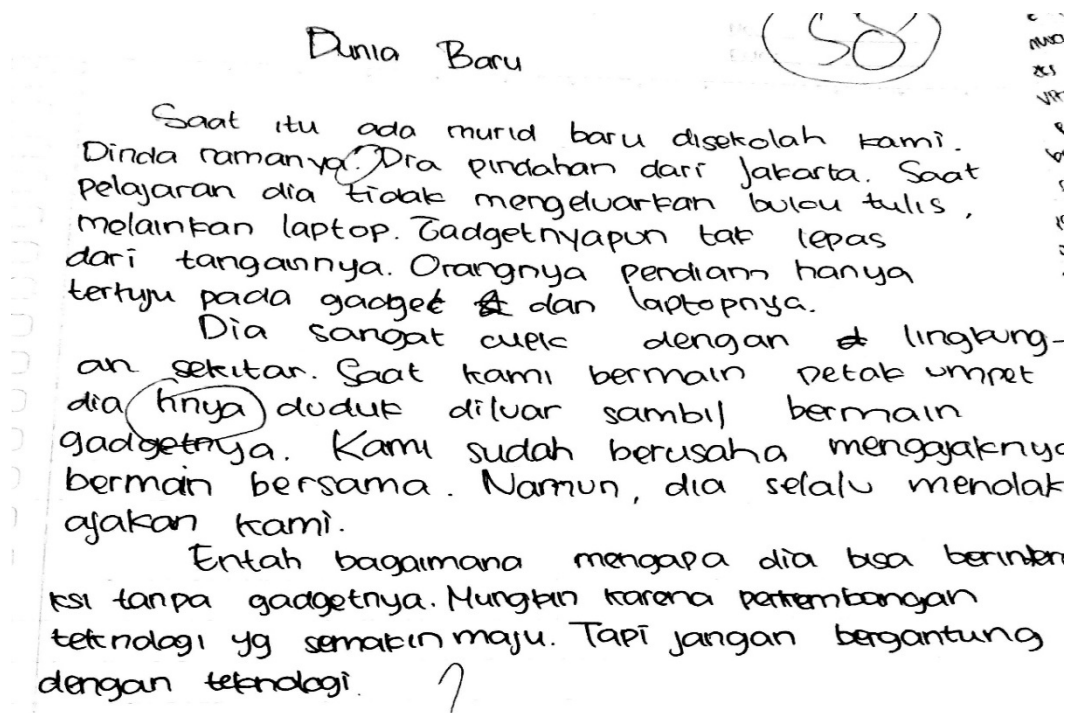 Dunia Baru
58
Saat itu ada murid baru disekolah kami.
Dinda namanya. Dia pindahan dari Jakarta. Saat
pelajaran dia tidak mengeluarkan buku tulis,
melainkan laptop. Gadgetnyapun tak lepas
dari tangannya. Orangnya pendiam hanya
tertuju pada gadget dan laptopnya.
Dia sangat cuek dengan lingkung-
an sekitar. Saat kami bermain petak umpet
dia hnya duduk diluar sambil bermain
gadgetnya. Kami sudah berusaha mengajaknya
bermain bersama. Namun, dia selalu menolak
ajakan kami.
Entah bagaimana mengapa dia bisa berinter
ksi tanpa gadgetnya. Mungkin karena perkembangan
teknologi yg semakin maju. Tapi jangan bergantung
dengan teknologi.